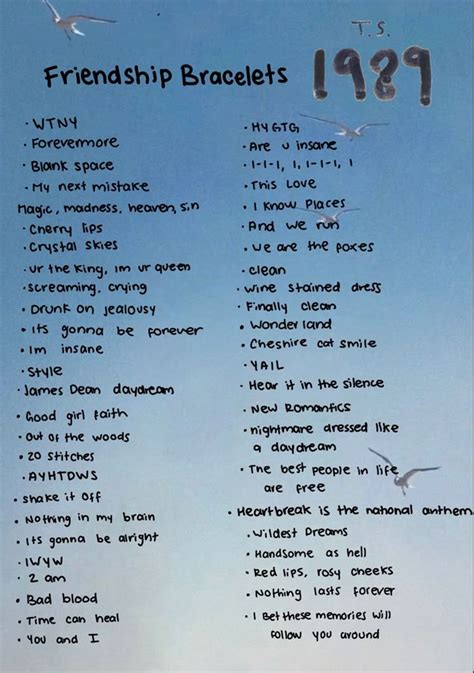 T.S.
1989
Friendship Bracelets
· WTNY
· Forevermore
· Blank space
· My next mistake
Magic, madness, heaven, sin
· Cherry lips
· Crystal skies
· ur the King, im ur queen
· screaming, crying
· Drunk on jealousy
· Its gonna be forever
· Im insane
· Style
· James Dean daydream
· Good girl faith
· Out of the woods
· 20 Stitches
· AYHTDWS
· Shake it off
· Nothing in my brain
· Its gonna be alright
· IWYW
· 2 am
· Bad blood
· Time can heal
· You and I
· HYGTG
· Are u insane
· 1-1-1, 1, 1-1-1, 1
· This Love
· I Know Places
· And we run
· we are the foxes
· clean
· wine stained dress
· Finally clean
· Wonderland
· Cheshire cat smile
· YAIL
· Hear it in the silence
· New Romantics
· nightmare dressed like
a daydream
· The best people in life
are free
· Heartbreak is the national anthem
· Wildest Dreams
· Handsome as hell
· Red lips, rosy cheeks
· Nothing lasts forever
· I Bet these memories will
follow you around